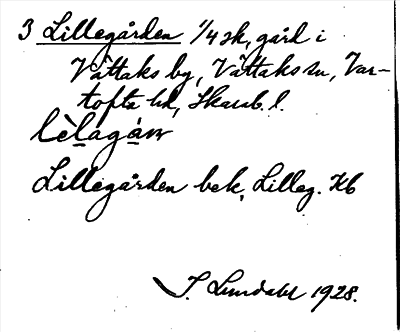 3 Lillegården 1/4 sk, gård i
Vättaks by, Vättaks sn, Var-
tofta hd, Skarab. l.
lèlagáɷr
Lillegården bek, Lilleg. Kb
J. Lundahl 1928.